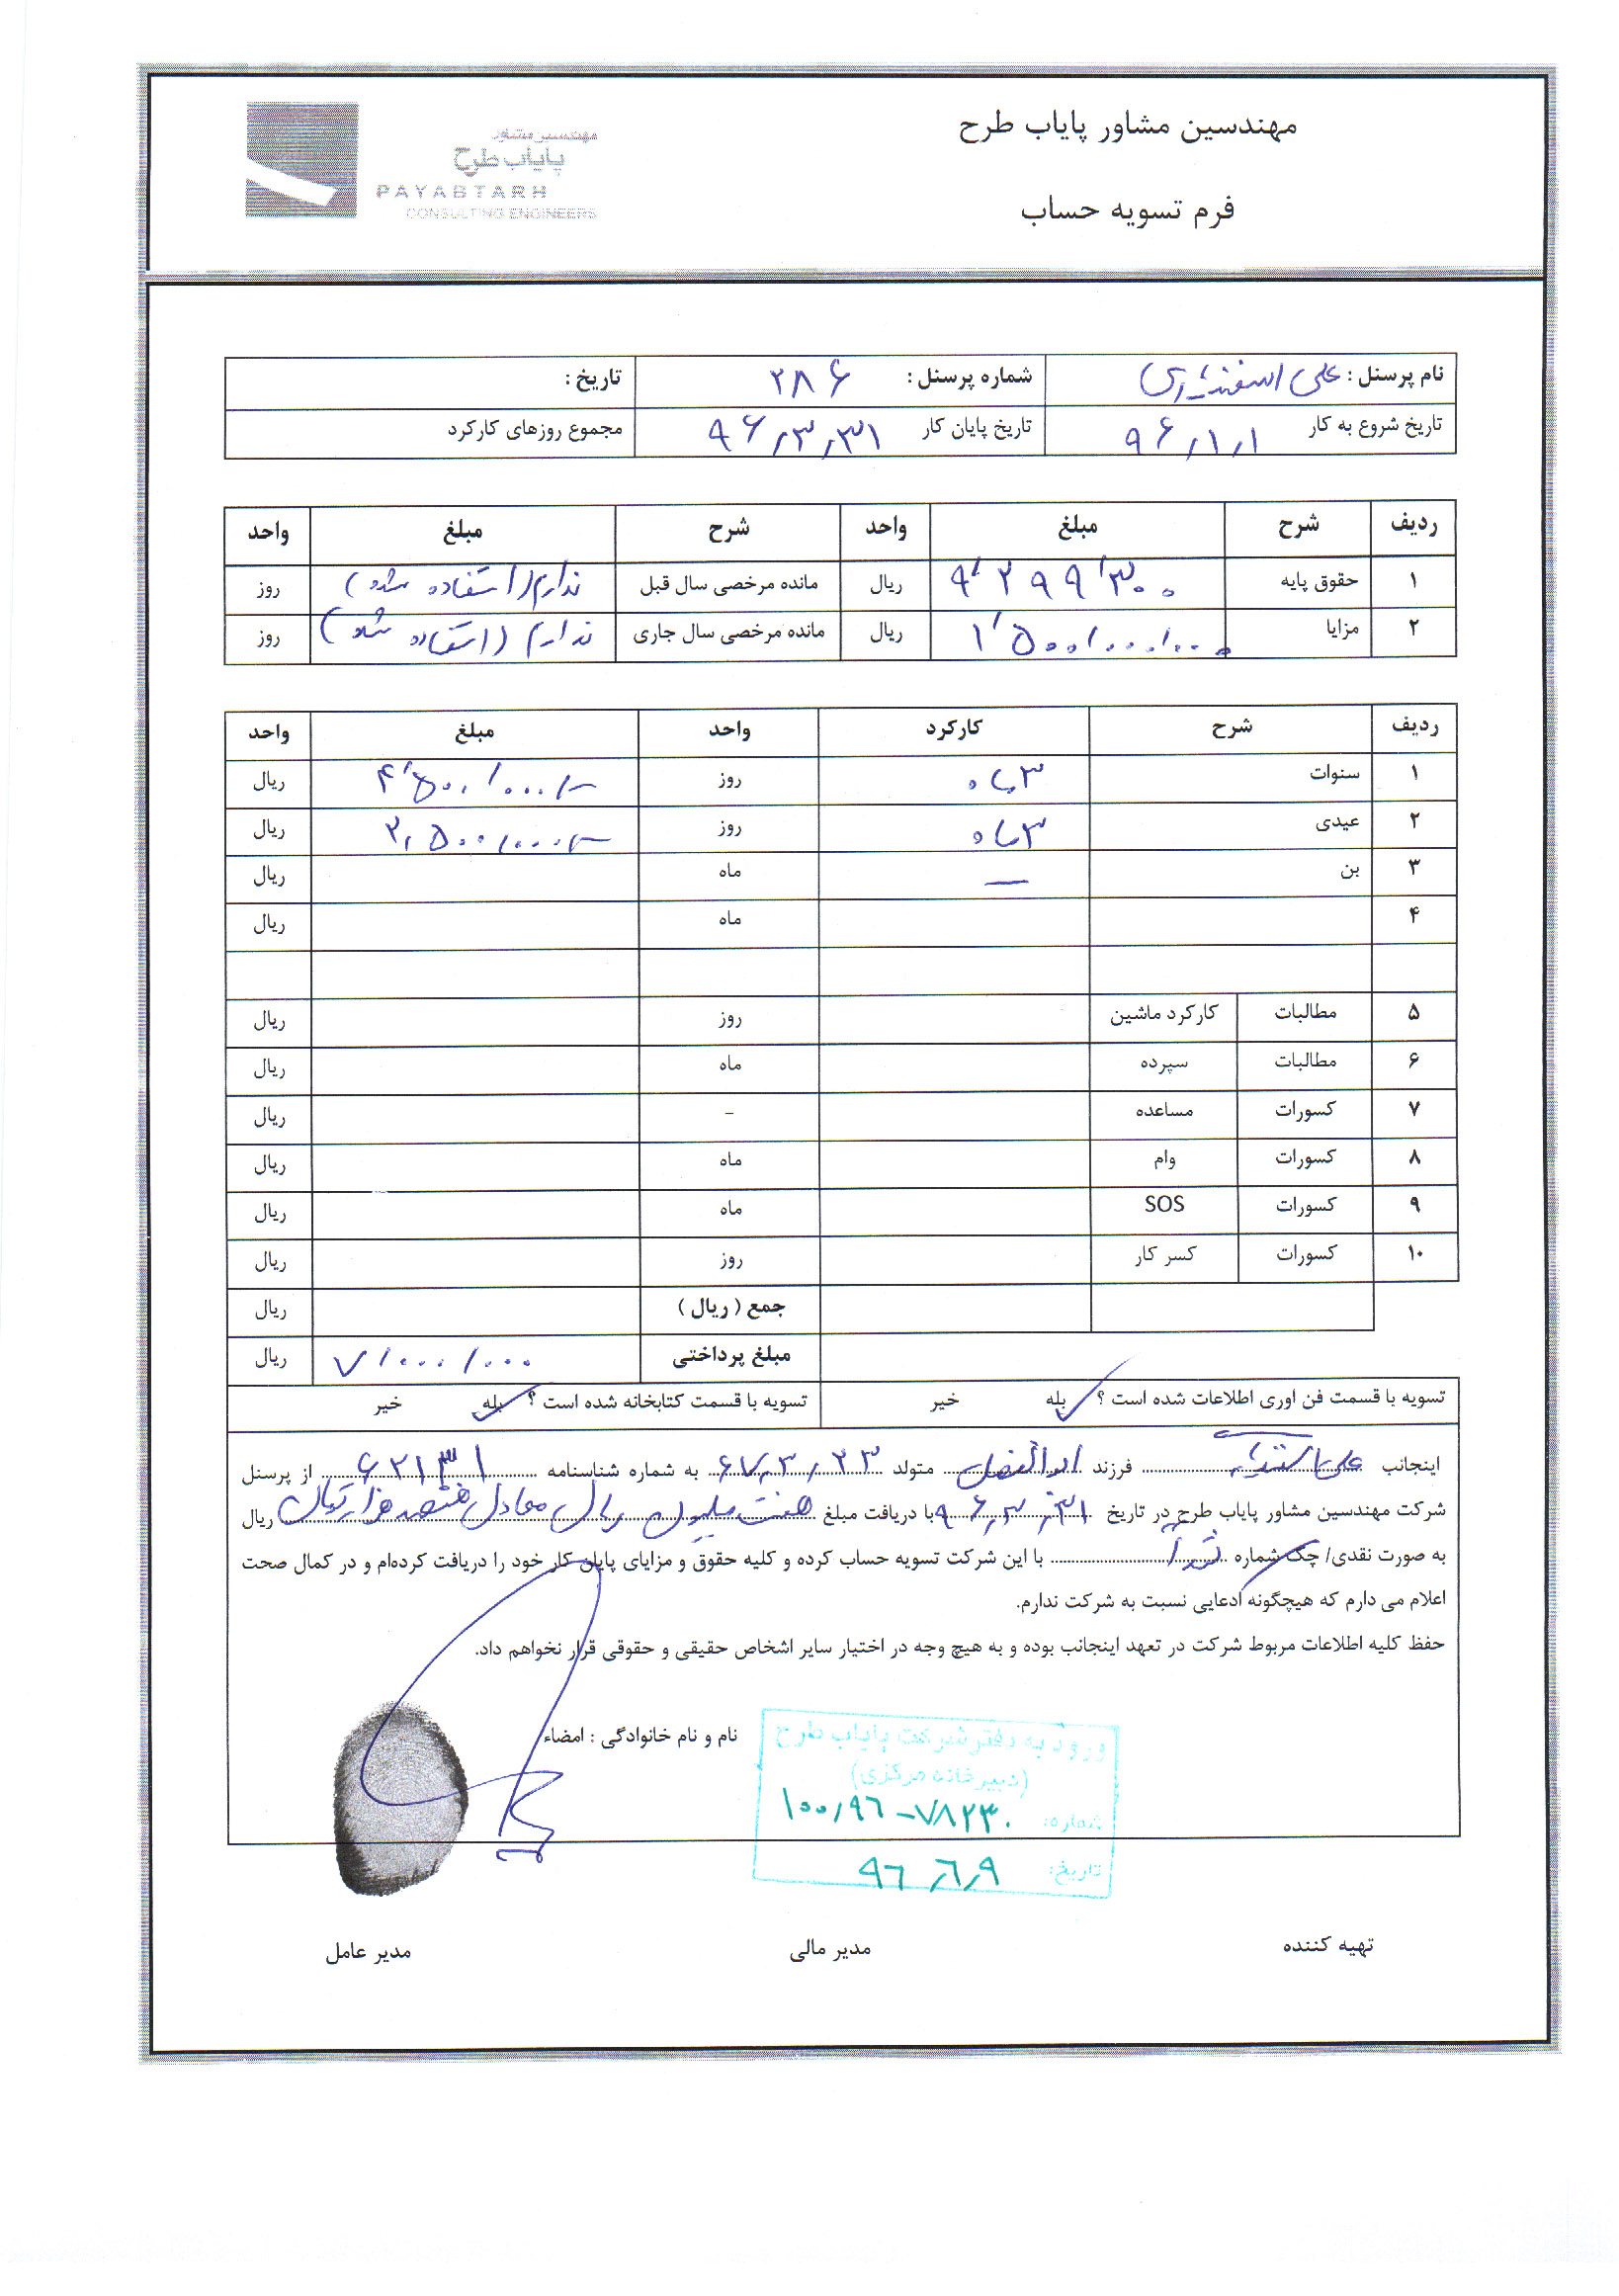 مهندسین مشاور پایاب طرح
فرم تسویه حساب
مهندسین مشاور
پایاب طرح
PAYABTARH
CONSULTING ENGINEERS
نام پرسنل : علی شماره پرسنل : ۲۸۶ تاریخ :
تاریخ شروع به کار ۹۶/۱/۱ تاریخ پایان کار ۹۶/۳/۳۱ مجموع روزهای کارکرد
ردیف شرح مبلغ واحد شرح مبلغ واحد
۱ حقوق پایه ۹٬۲۹۹٬۳۰۰ ریال مانده مرخصی سال قبل ندارم (استفاده شد) روز
۲ مزایا ۱٬۵۰۰/۰۰۰/۰۰۰ ریال مانده مرخصی سال جاری ندارم (استفاده شد) روز
ردیف شرح کارکرد واحد مبلغ واحد
۱ سنوات ۳ ماه روز ۴٬۵۰۰٬۰۰۰/- ریال
۲ عیدی ۳ ماه روز ۲,۵۰۰,۰۰۰/- ریال
۳ بن — ماه ریال
۴ ماه ریال
۵ مطالبات کارکرد ماشین روز ریال
۶ مطالبات سپرده ماه ریال
۷ کسورات مساعده - ریال
۸ کسورات وام ماه ریال
۹ کسورات SOS ماه ریال
۱۰ کسورات کسر کار روز ریال
جمع ( ریال ) ریال
مبلغ پرداختی ۷/۰۰۰/۰۰۰ ریال
تسویه با قسمت فن اوری اطلاعات شده است ؟ بله خیر تسویه با قسمت کتابخانه شده است ؟ بله خیر
اینجانب علی فرزند ابوالفضل متولد ۶۷/۳/۲۳ به شماره شناسنامه ۶۲۱۳۱ از پرسنل
شرکت مهندسین مشاور پایاب طرح در تاریخ ۹۶/۳/۳۱ با دریافت مبلغ هفت میلیون ریال معادل هفتصد هزار تومان ریال
به صورت نقدی/ چک شماره با این شرکت تسویه حساب کرده و کلیه حقوق و مزایای پایان کار خود را دریافت کرده‌ام و در کمال صحت
اعلام می دارم که هیچگونه ادعایی نسبت به شرکت ندارم.
حفظ کلیه اطلاعات مربوط شرکت در تعهد اینجانب بوده و به هیچ وجه در اختیار سایر اشخاص حقیقی و حقوقی قرار نخواهم داد.
نام و نام خانوادگی : امضاء
ورود به دفتر شرکت پایاب طرح
(دبیرخانه مرکزی)
شماره: ۱۰۰/۹۶-۷۸۲۳۰
تاریخ: ۹۶/۶/۹
تهیه کننده مدیر مالی مدیر عامل